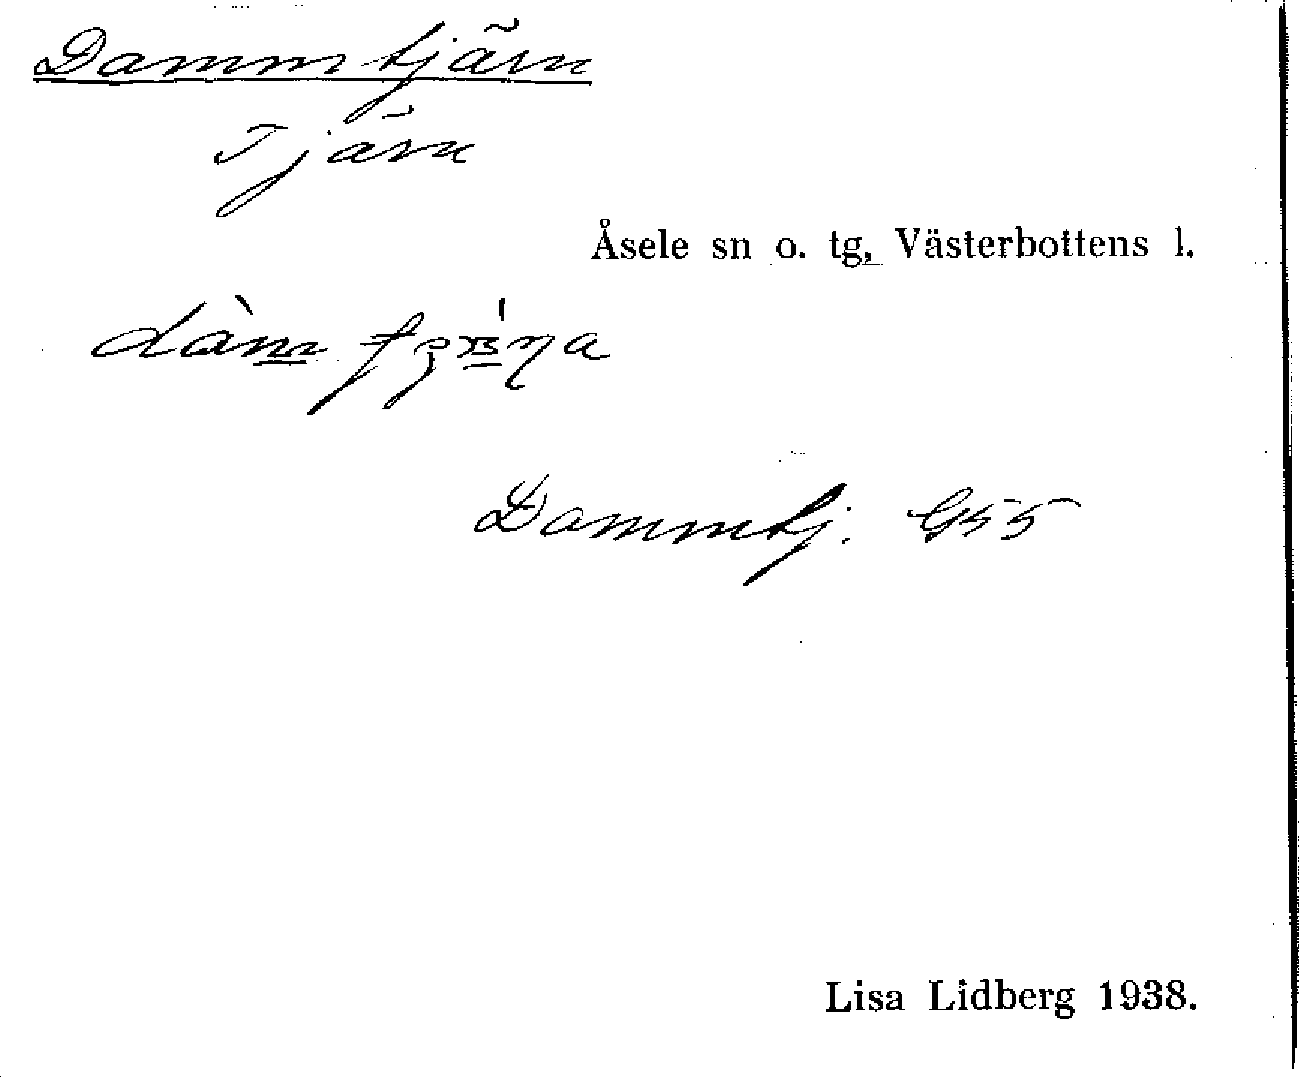 Dammtjärn
Tjärn
Åsele sn o. tg, Västerbottens l.
Dammtj. G55
Lisa Lidberg 1938.